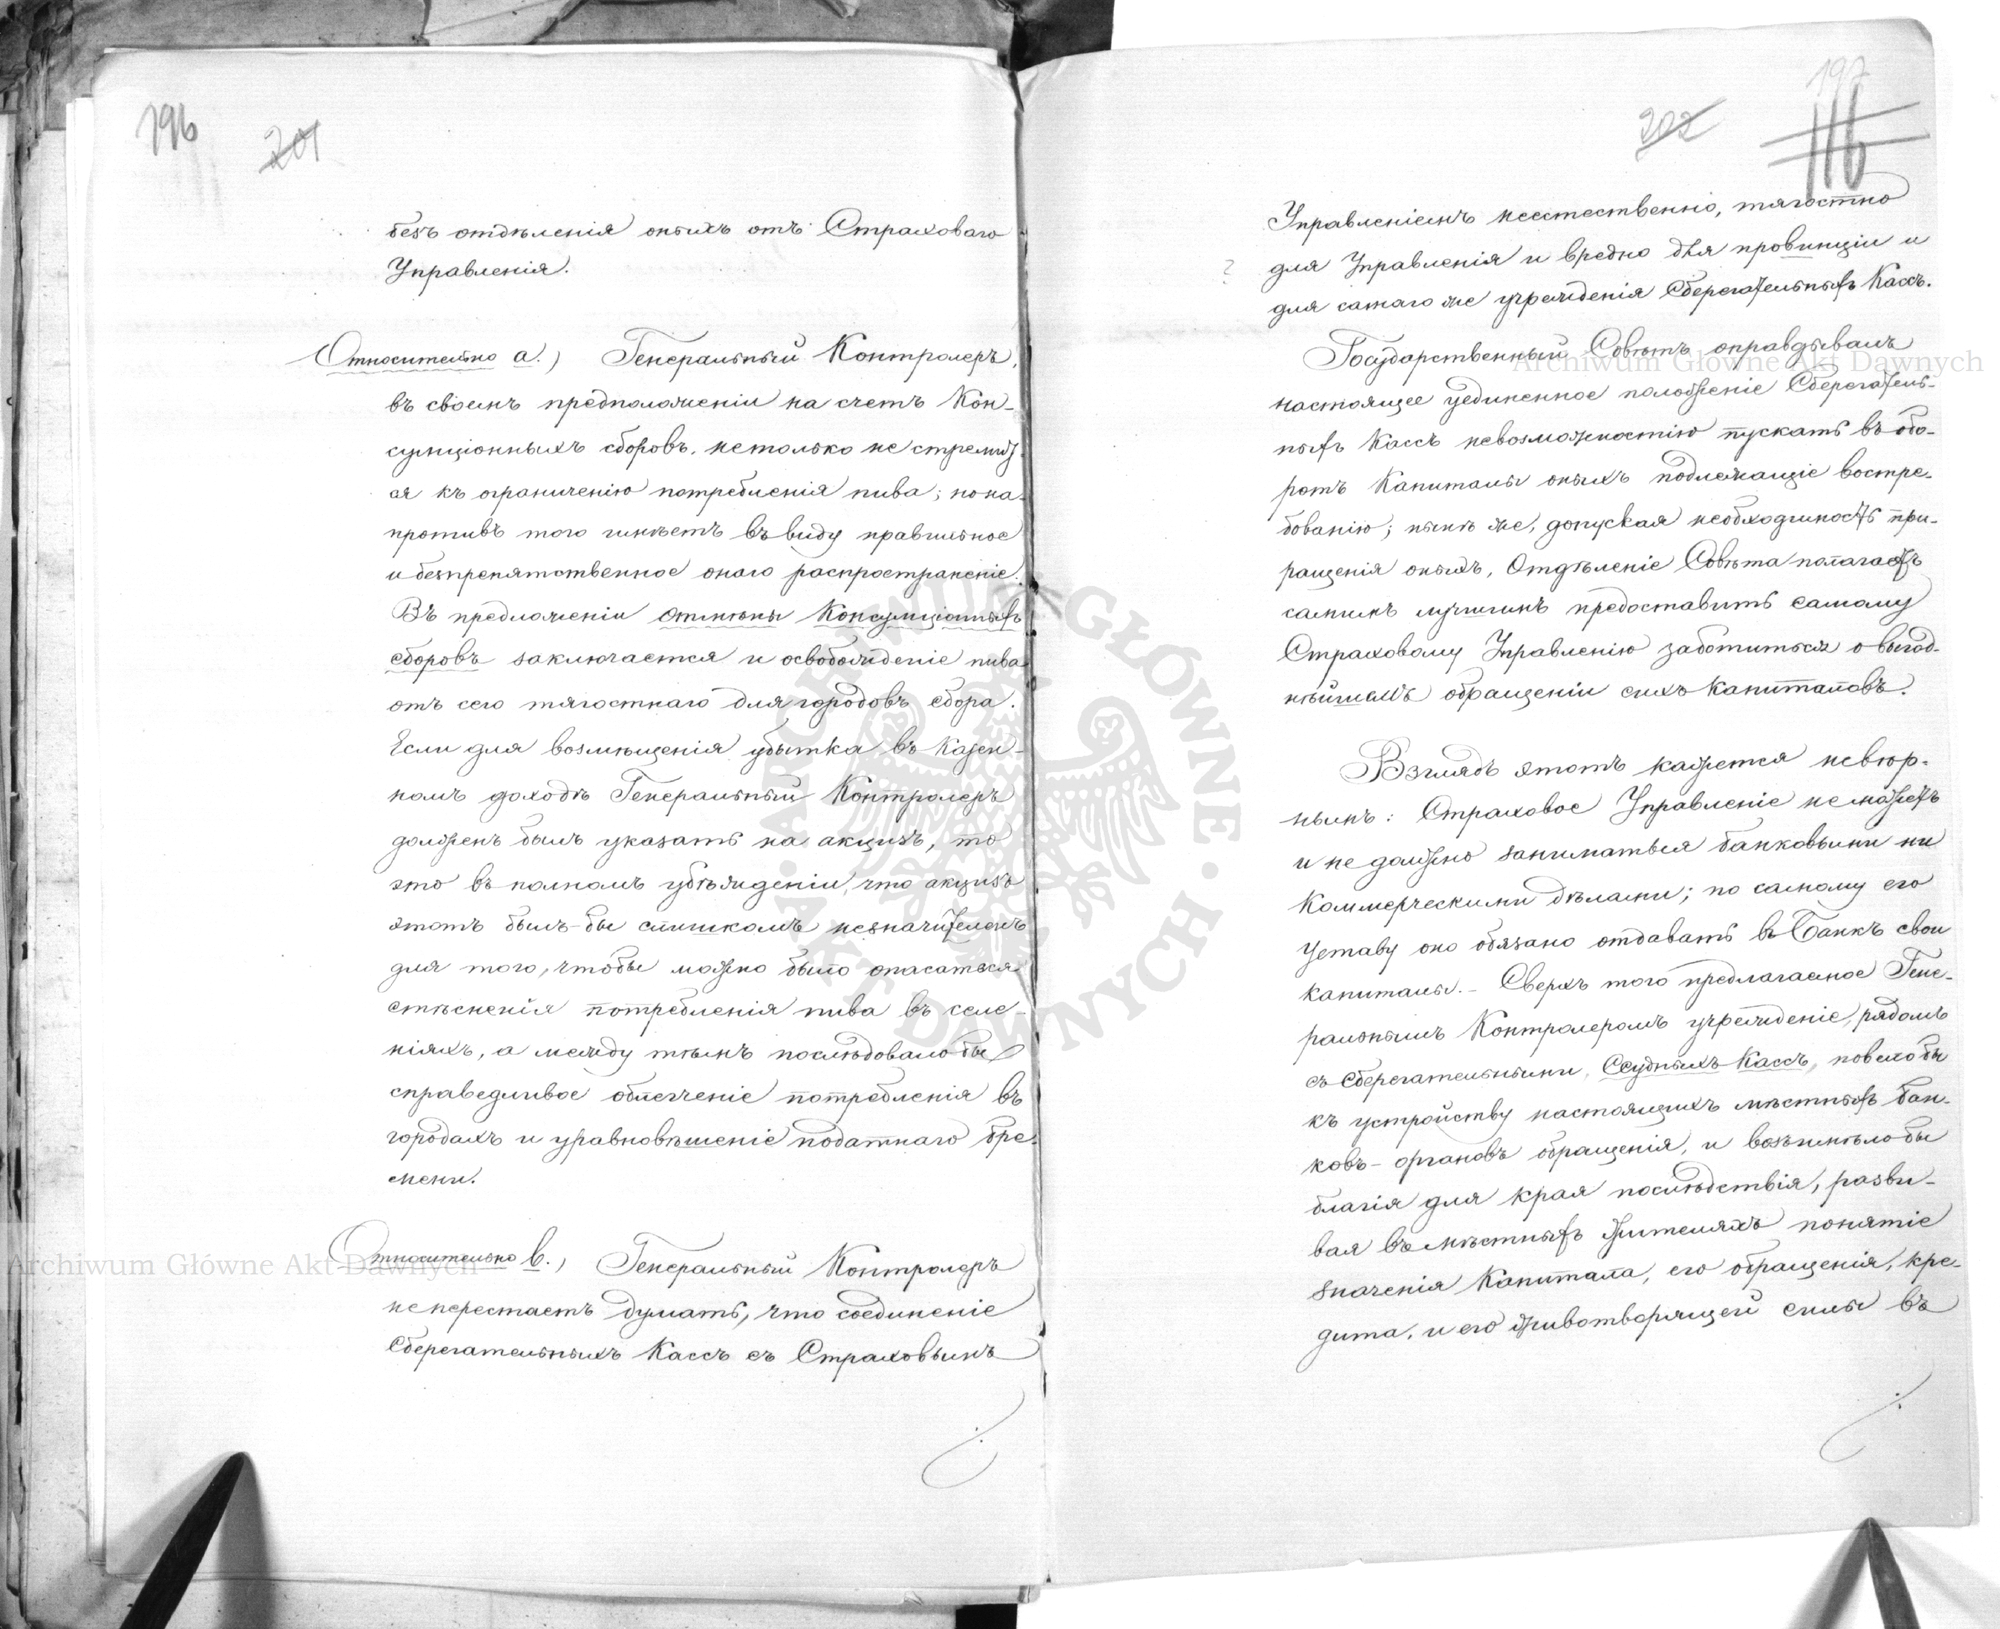 196
201
безъ отдѣленія оныхъ отъ Страховаго
Управленія.
Относительно а.) Генеральный Контролеръ,
въ своемъ предположеніи на счетъ Кон-
сумціонныхъ сборовъ, нетолько не стремит-
ся къ ограниченію потребленія пива; но на-
противъ того имѣетъ въ виду правильное
и безпрепятственное онаго распространеніе.
Въ предложеніи отмѣны Консумціонныхъ
сборовъ заключается и освобожденіе пива
отъ сего тягостнаго для городовъ сбора.
Если для возмѣщенія убытка въ Казен-
номъ доходѣ Генеральный Контролеръ
долженъ былъ указать на акцизъ, то
это въ полномъ убѣжденіи, что акцизъ
этотъ былъ-бы слишкомъ незначителенъ
для того, чтобы можно было опасаться
стѣсненія потребленія пива въ селе-
ніяхъ, а между тѣмъ послѣдовало бы
справедливое облегченіе потребленія въ
городахъ и уравновѣшеніе податнаго бре-
мени.
Относительно в.) Генеральный Контролеръ
не перестаетъ думать, что соединеніе
Сберегательныхъ Кассъ съ Страховымъ
197
202
116
Управленіемъ неестественно, тягостно
? для Управленія и вредно для провинціи и
для самаго же учрежденія Сберегательныхъ Кассъ.
Государственный Совѣтъ оправдывалъ
настоящее уединенное положеніе Сберегатель-
ныхъ Кассъ невозможностію пускать въ обо-
ротъ Капиталы оныхъ подлежащіе востре-
бованію; нынѣ же, допуская необходимость при-
ращенія оныхъ, Отдѣленіе Совѣта полагаетъ
самымъ лучшимъ предоставить самому
Страховому Управленію заботиться о выгод-
нѣйшемъ обращеніи сихъ Капиталовъ.
Взглядъ этотъ кажется невѣр-
нымъ: Страховое Управленіе не можетъ
и не должно заниматься банковыми ни
Коммерческими дѣлами; по самому его
Уставу оно обязано отдавать въ Банкъ свои
капиталы. - Сверхъ того предлагаемое Гене-
ральнымъ Контролеромъ учрежденіе, рядомъ
съ Сберегательными, Ссудныхъ Кассъ, повело бы
къ устройству настоящихъ мѣстныхъ бан-
ковъ - органовъ обращенія, и возъимѣло бы
благія для края послѣдствія, разви-
вая въ мѣстныхъ жителяхъ понятіе
значенія Капитала, его обращенія, кре-
дита, и его животворящей силы въ
Archiwum Główne Akt Dawnych
Archiwum Główne Akt Dawnych
ARCHIWUM GŁÓWNE · AKT DAWNYCH ·